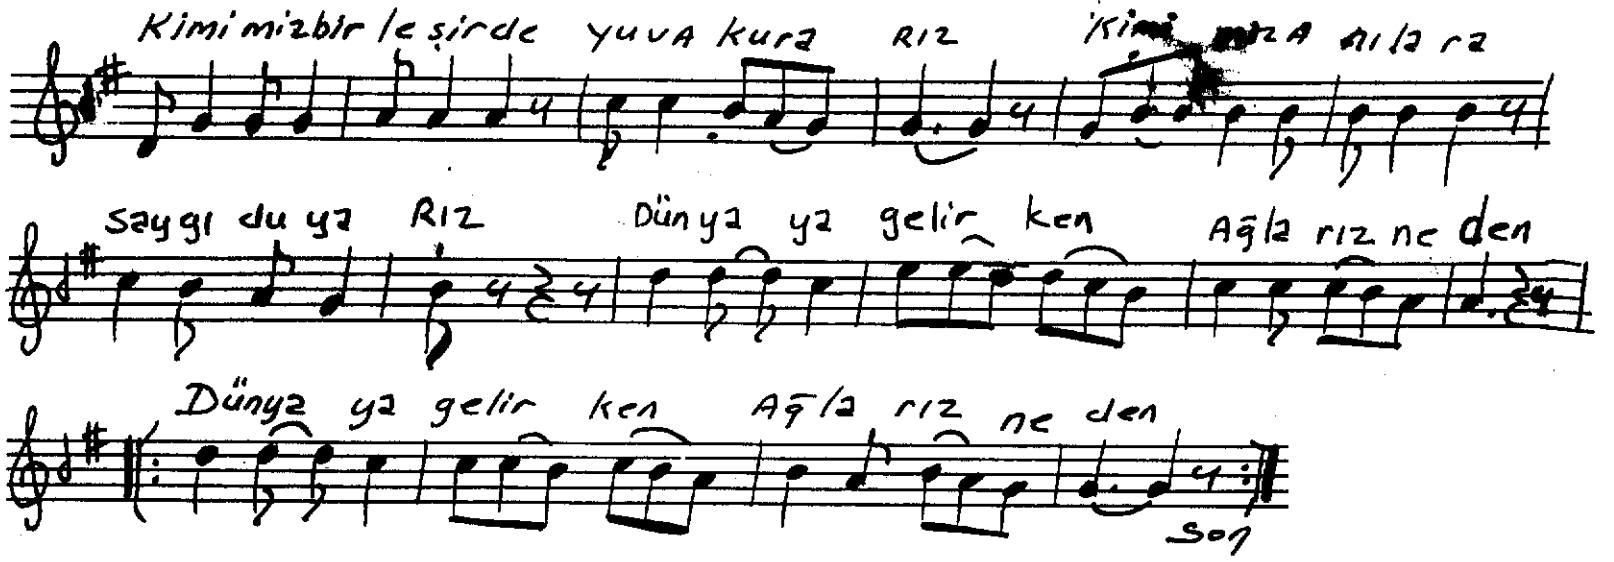 Kimimizbirleşirde yuvA kura RIZ Kimi mizA nılara
saygı du ya RIZ Dünya ya gelir ken Ağla rız ne den
Dünya ya gelir ken Ağla rız ne den
son